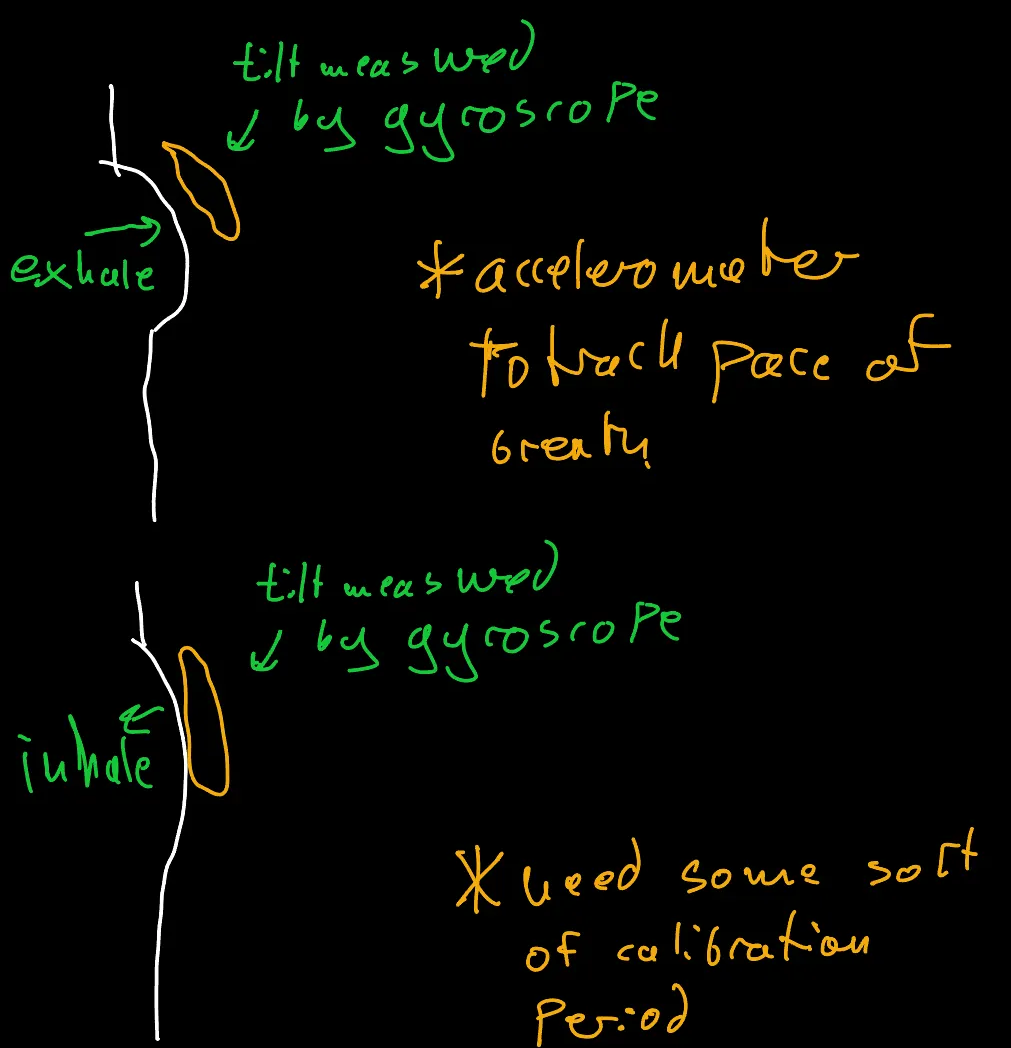 tilt measured
by gyroscope
exhale
*accelerometer
to track pace of
breath
tilt measured
by gyroscope
inhale
*need some sort
of calibration
period